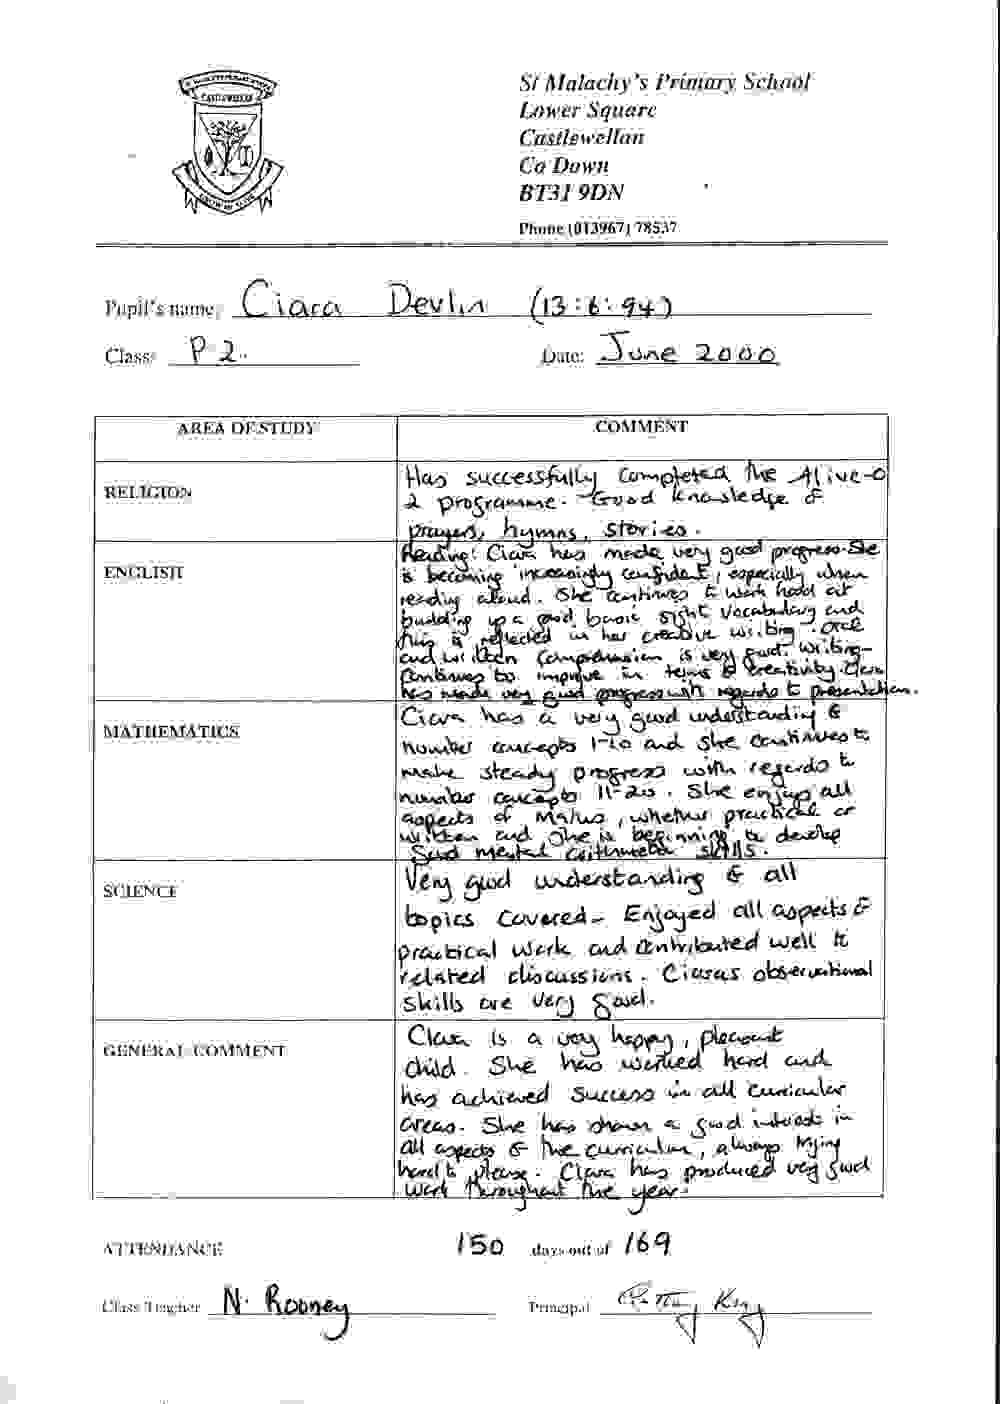 CASTLEWELLAN
St Malachy's Primary School
Lower Square
Castlewellan
Co Down
BT31 9DN
Phone (013967) 78537
Pupil's name: Ciara Devlin (13:6:94)
Class: P2. Date: June 2000
AREA OF STUDY COMMENT
RELIGION
Has successfully completed the Alive-O
2 programme. Good knowledge of
prayers, hymns, stories.
ENGLISH
Reading: Ciara has made very good progress. She
is becoming increasingly confident, especially when
reading aloud. She continues to work hard at
building up a good basic sight vocabulary and
this is reflected in her creative writing. Oral
and written comprehension is very good. Writing-
continues to improve in terms of creativity. Ciara
has made very good progress with regards to presentation.
MATHEMATICS
Ciara has a very good understanding of
number concepts 1-10 and she continues to
make steady progress with regards to
number concepts 11-20. She enjoys all
aspects of Maths, whether practical or
written and she is beginning to develop
good mental arithmetic skills.
SCIENCE
Very good understanding of all
topics covered- Enjoyed all aspects of
practical work and contributed well to
related discussions. Ciaras observational
skills are very good.
GENERAL COMMENT
Ciara is a very happy, pleasant
child. She has worked hard and
has achieved success in all curricular
areas. She has shown a good interest in
all aspects of the curriculum, always trying
hard to please. Ciara has produced very good
work throughout the year.
ATTENDANCE 150 days out of 169
Class Teacher N. Rooney Principal King